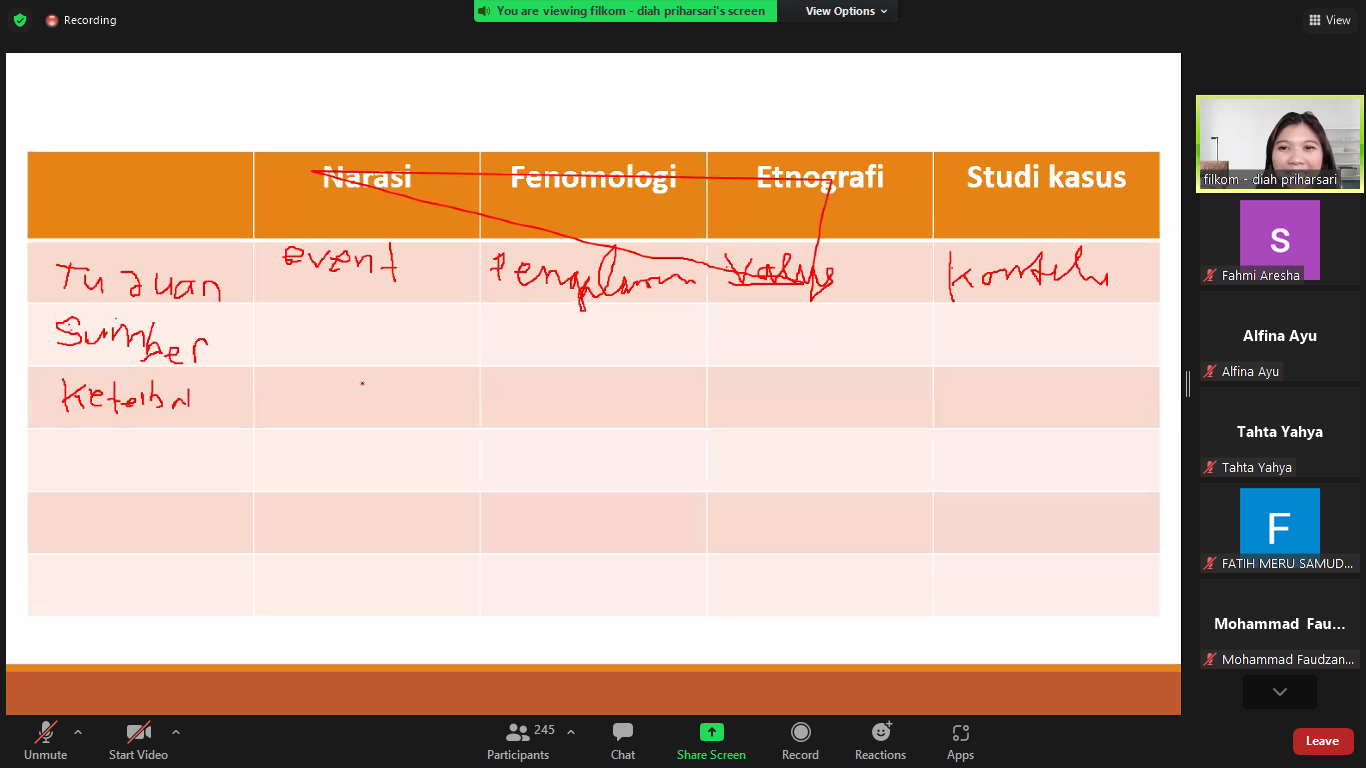 Recording
You are viewing filkom - diah priharsari's screen
View Options
View
Narasi Fenomologi Etnografi Studi kasus
Tujuan event Value
Sumber
filkom - diah priharsari
S
Fahmi Aresha
Alfina Ayu
Alfina Ayu
Tahta Yahya
Tahta Yahya
F
FATIH MERU SAMUD...
Mohammad Fau...
Mohammad Faudzan...
Unmute
Start Video
245
Participants
Chat
Share Screen
Record
Reactions
Apps
Leave